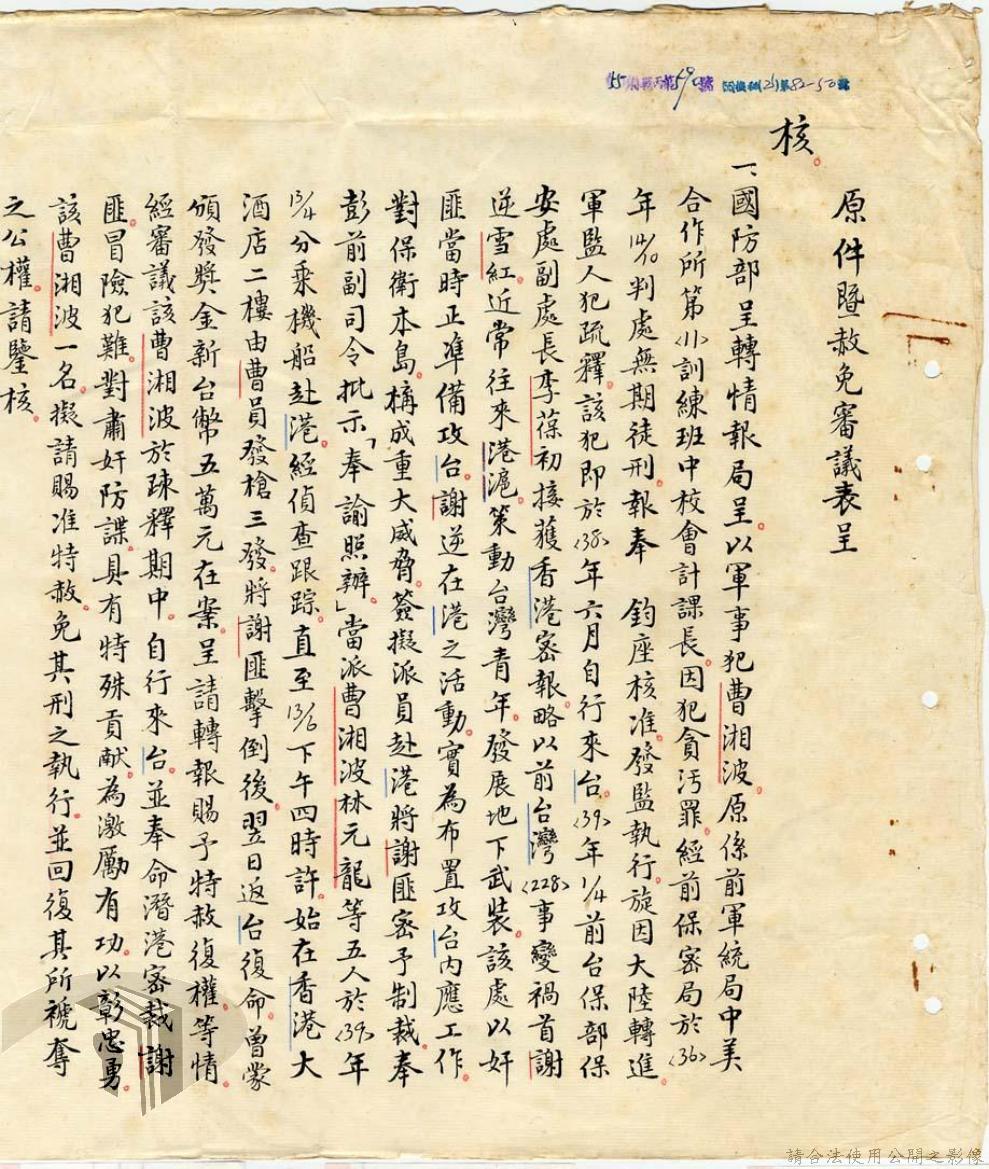 原件暨赦免審議表呈
核。
一、國防部呈轉情報局呈。以軍事犯曹湘波。原係前軍統局中美
合作所第<11>訓練班中校會計課長。因犯貪污罪。經前保密局於<36>
年14/10判處無期徒刑。報奉 鈞座核准。發監執行。旋因大陸轉進。
軍監人犯疏釋。該犯即於<38>年六月自行來台。<39>年1/4前台保部保
安處副處長李葆初接獲香港密報。略以前台灣<228>事變禍首謝
逆雪紅。近常往來港滬。策動台灣青年。發展地下武裝。該處以奸
匪當時正準備攻台。謝逆在港之活動。實為布置攻台內應工作。
對保衛本島。構成重大威脅。簽擬派員赴港將謝匪密予制裁。奉
彭前副司令批示「奉諭照辦。」當派曹湘波林元龍等五人於<39>年
13/4分乘機船赴港。經偵查跟踪。直至13/6下午四時許。始在香港大
酒店二樓由曹員發槍三發。將謝匪擊倒後。翌日返台復命。曾蒙
頒發獎金新台幣五萬元在案。呈請轉報賜予特赦復權。等情。
經審議該曹湘波於疎釋期中。自行來台。並奉命潛港密裁謝
匪。冒險犯難。對肅奸防諜。具有特殊貢獻。為激勵有功。以彰忠勇。
該曹湘波一名。擬請賜准特赦。免其刑之執行。並回復其所褫奪
之公權。請鑒核。
請合法使用公開之影像